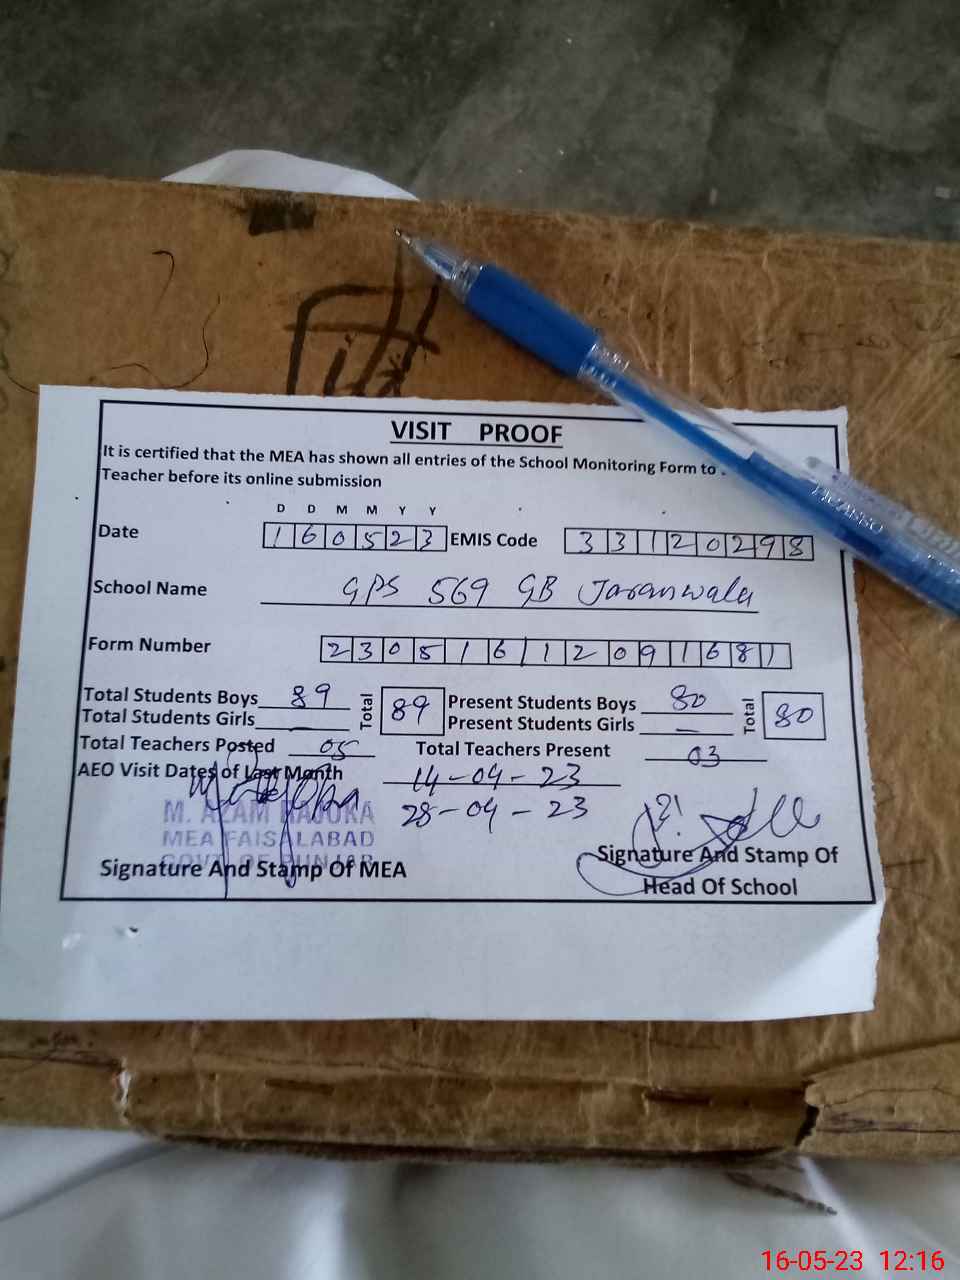 VISIT PROOF
It is certified that the MEA has shown all entries of the School Monitoring Form to
Teacher before its online submission
D D M M Y Y
Date 160523 EMIS Code 33120298
School Name GPS 569 GB Jaranwala
Form Number 23051612091681
Total Students Boys 89 Total 89 Present Students Boys 80 Total 80
Total Students Girls — Present Students Girls —
Total Teachers Posted 05 Total Teachers Present 03
AEO Visit Dates of Last Month 14-04-23
28-04-23
M. AZAM RAJOKA
MEA FAISALABAD
GOVT OF PUNJAB
Signature And Stamp Of MEA
Signature And Stamp Of
Head Of School
16-05-23 12:16